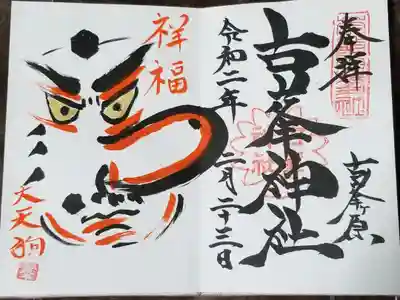 奉拝
古峯ヶ原
古峯神社
令和二年 二月二十三日
祥福
大天狗